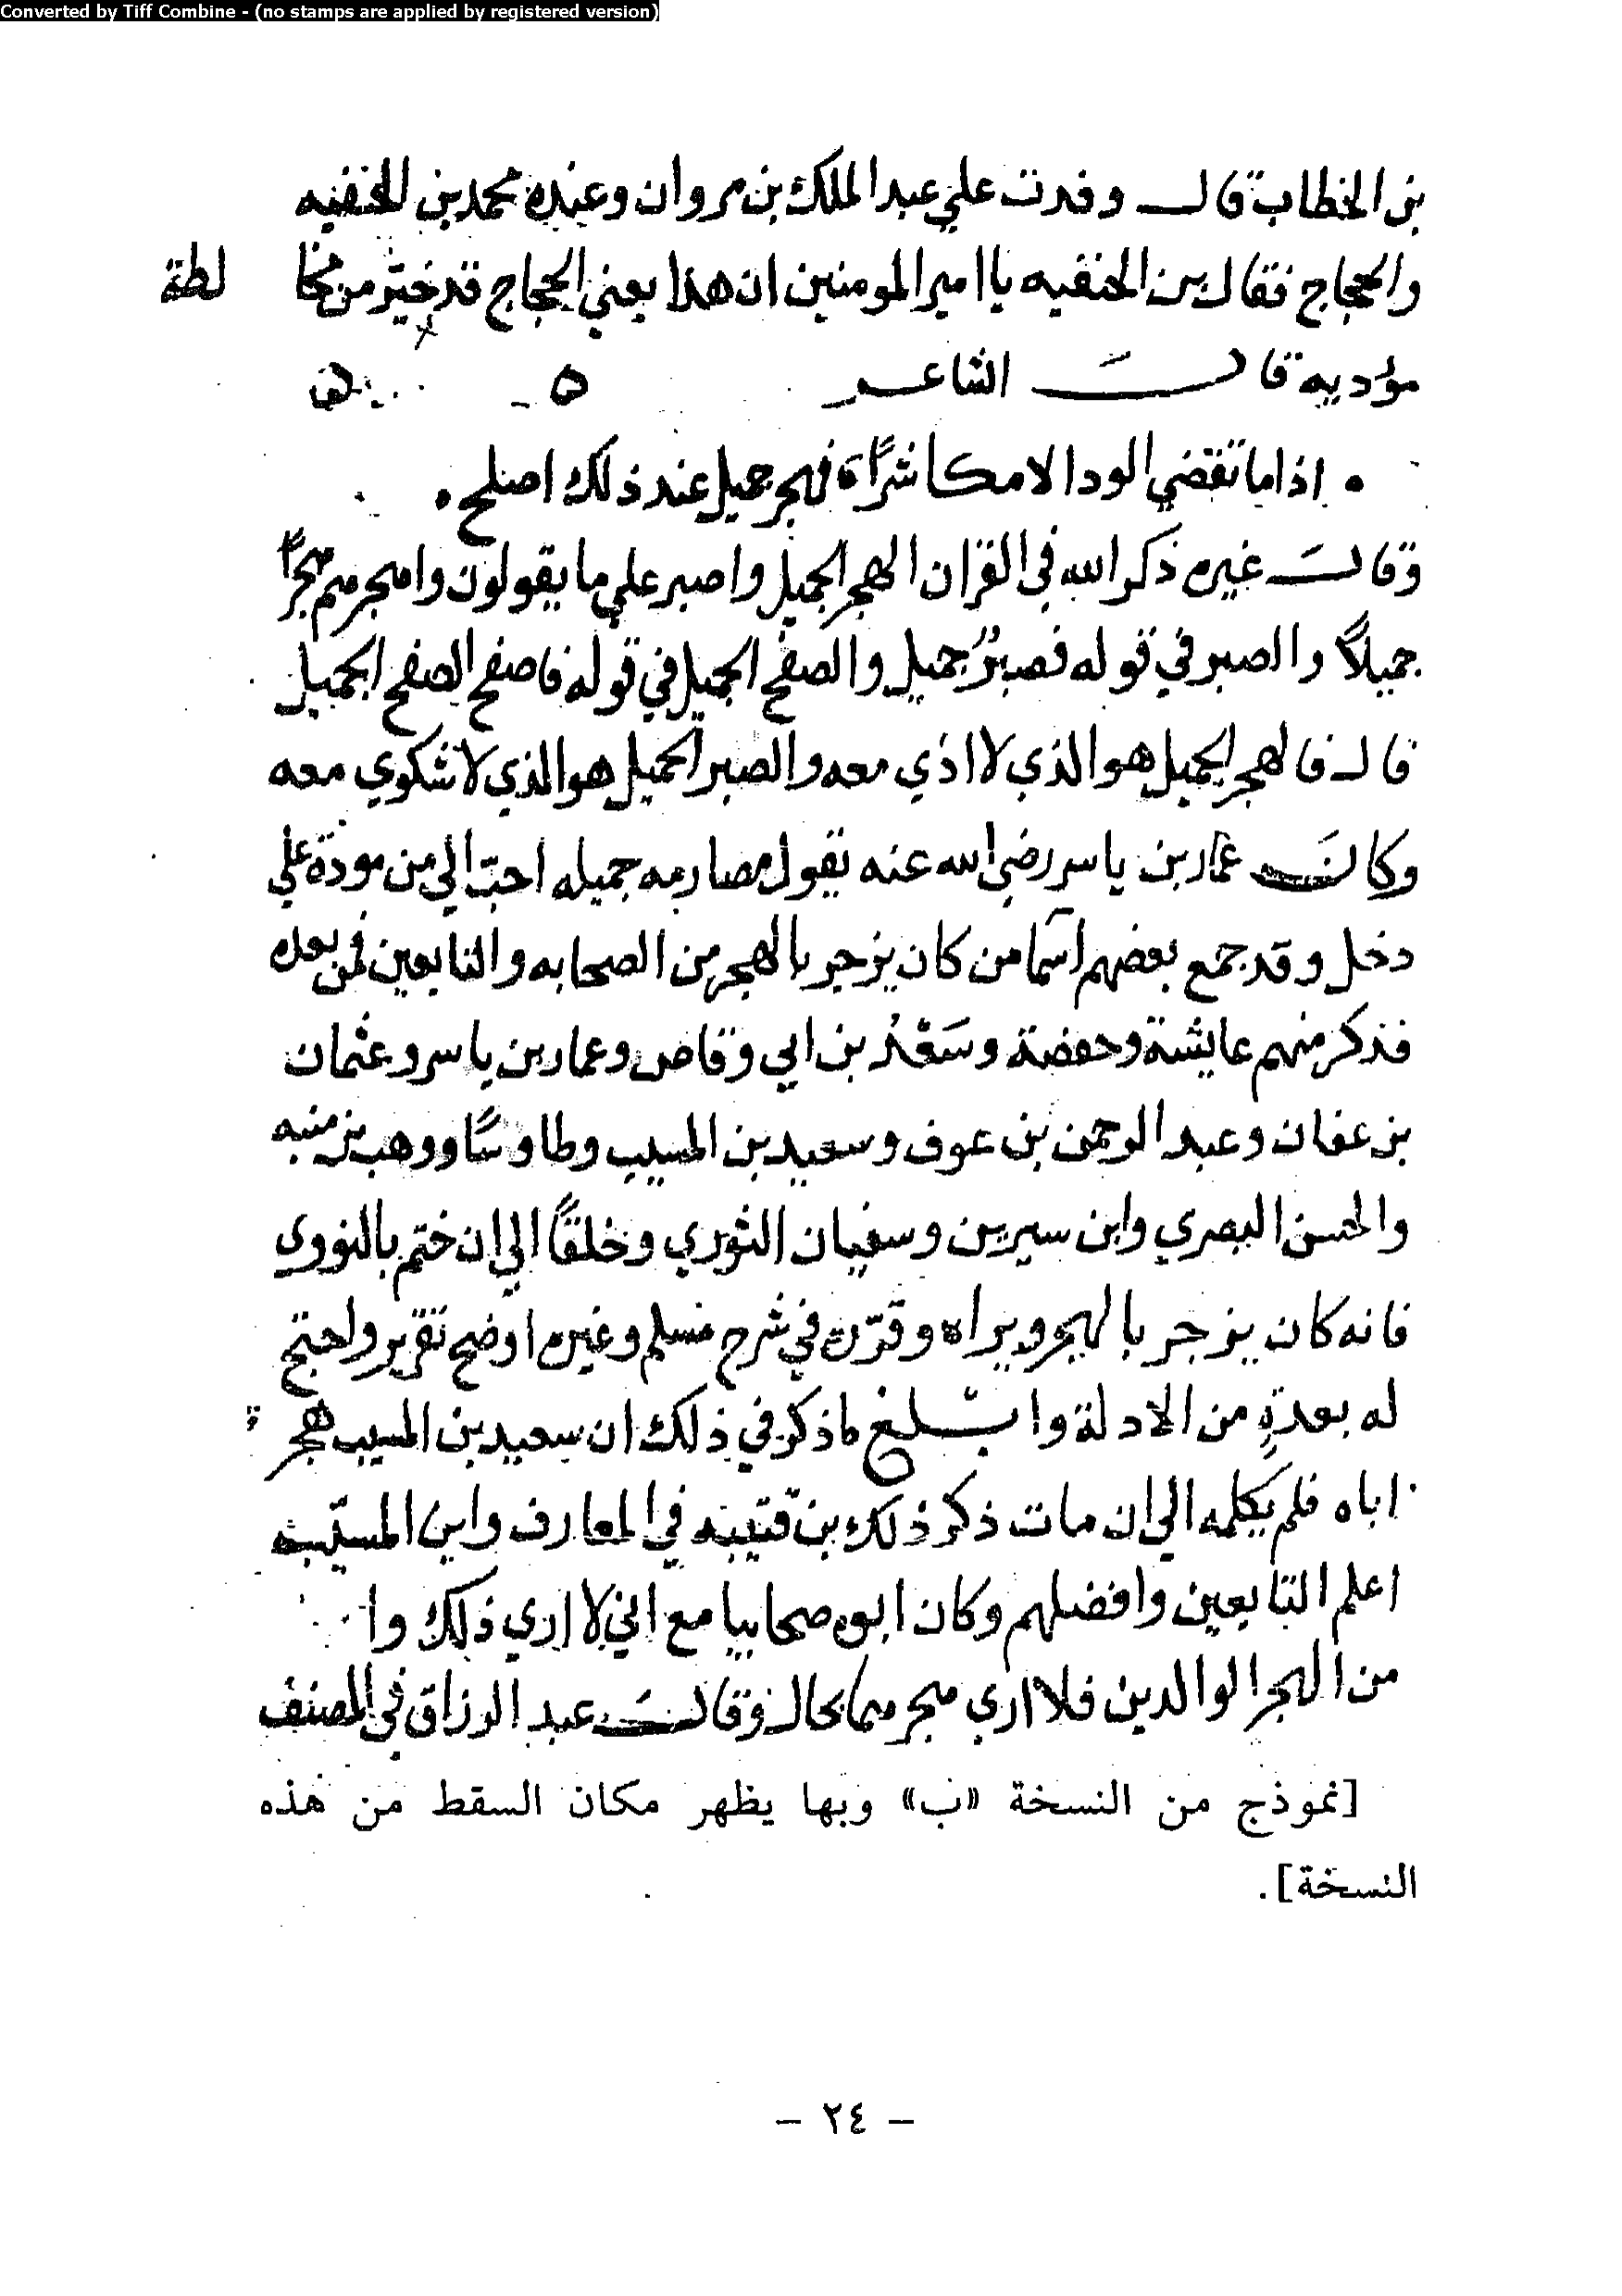 Converted by Tiff Combine - (no stamps are applied by registered version)
بن الخطاب قال وفدت علي عبد الملك بن مروان وعنده محمد بن الحنفيه
والحجاج فقال بن الحنفيه يا امير المومنين ان هذا يعني الحجاج قد خير من مخا لطة
مؤديه قال الشاعر
اذا ما تقضي الود الا مكاشراً فهجر جميل عند ذلك اصلح
وقال غيره ذكر الله في القران الهجر الجميل واصبر علي ما يقولون واهجرهم هجراً
جميلاً والصبر في قوله فصبرٌ جميل والصفح الجميل في قوله فاصفح الصفح الجميل
قال فالهجر الجميل هو الذي لا اذي معه والصبر الجميل هو الذي لا شكوي معه
وكان عمار بن ياسر رضي الله عنه يقول مصارمه جميله احبّ الي من مودة علي
دخل وقد جمع بعضهم اسما من كان يزجر بالهجر من الصحابه والتابعين فمن بعده
فذكر منهم عايشة وحفصة وسَعْدُ بن ابي وقاص وعمار بن ياسر وعثمان
بن عفان وعبد الرحمن بن عوف وسعيد بن المسيب وطاوسًا ووهب بن منبه
والحسن البصري وابن سيرين وسفيان الثوري وخلقاً الي ان ختم بالنووي
فانه كان يزجر بالهجر ويراه وقرّره في شرح مسلم وغيره اوضح تقرير واحتج
له بعدةٍ من الادلة وابلغ ما ذكر في ذلك ان سعيد بن المسيب هجر
اباه فلم يكلمه الي ان مات ذكر ذلك بن قتيبه في المعارف وابن المسيّب
اعلم التابعين وافضلهم وكان ابوه صحابيا مع اني لا اري ذلك وا
من الهجر الوالدين فلا اري هجرهما بحال وقال عبد الرزاق في المصنف
[نموذج من النسخة «ب» وبها يظهر مكان السقط من هذه
النسخة].
– ٢٤ –